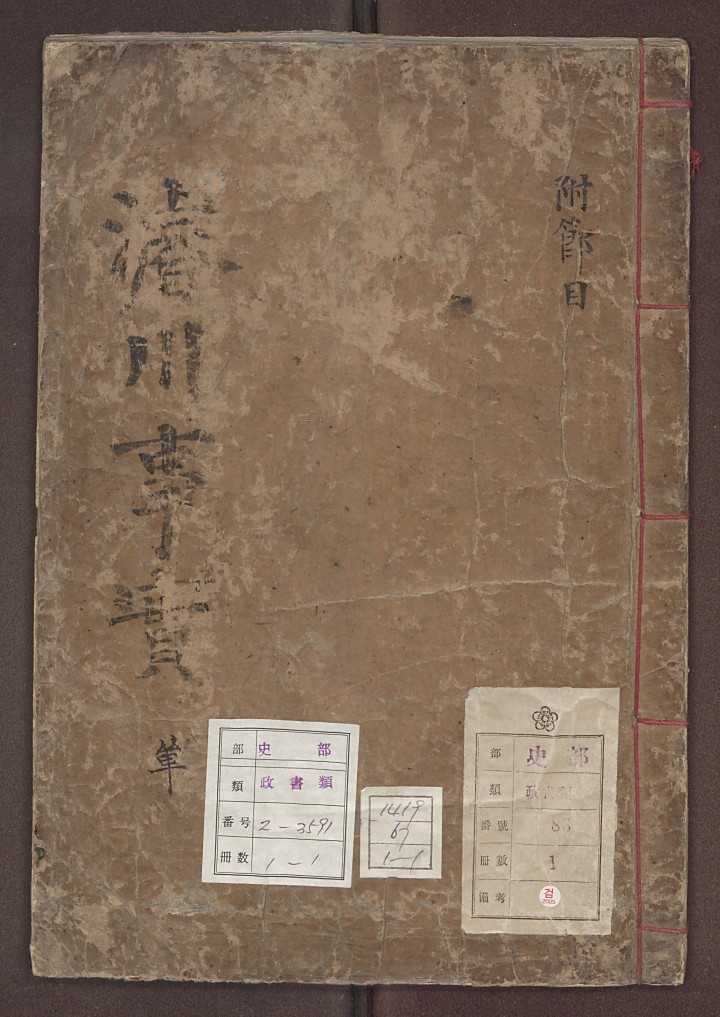 附節目
濬川事實
單
部 史部
類 政書類
番号 2-3591
冊数 1-1
1419
1-1
部 史部
類 政書類
番號
冊數 1
備考
검
2005